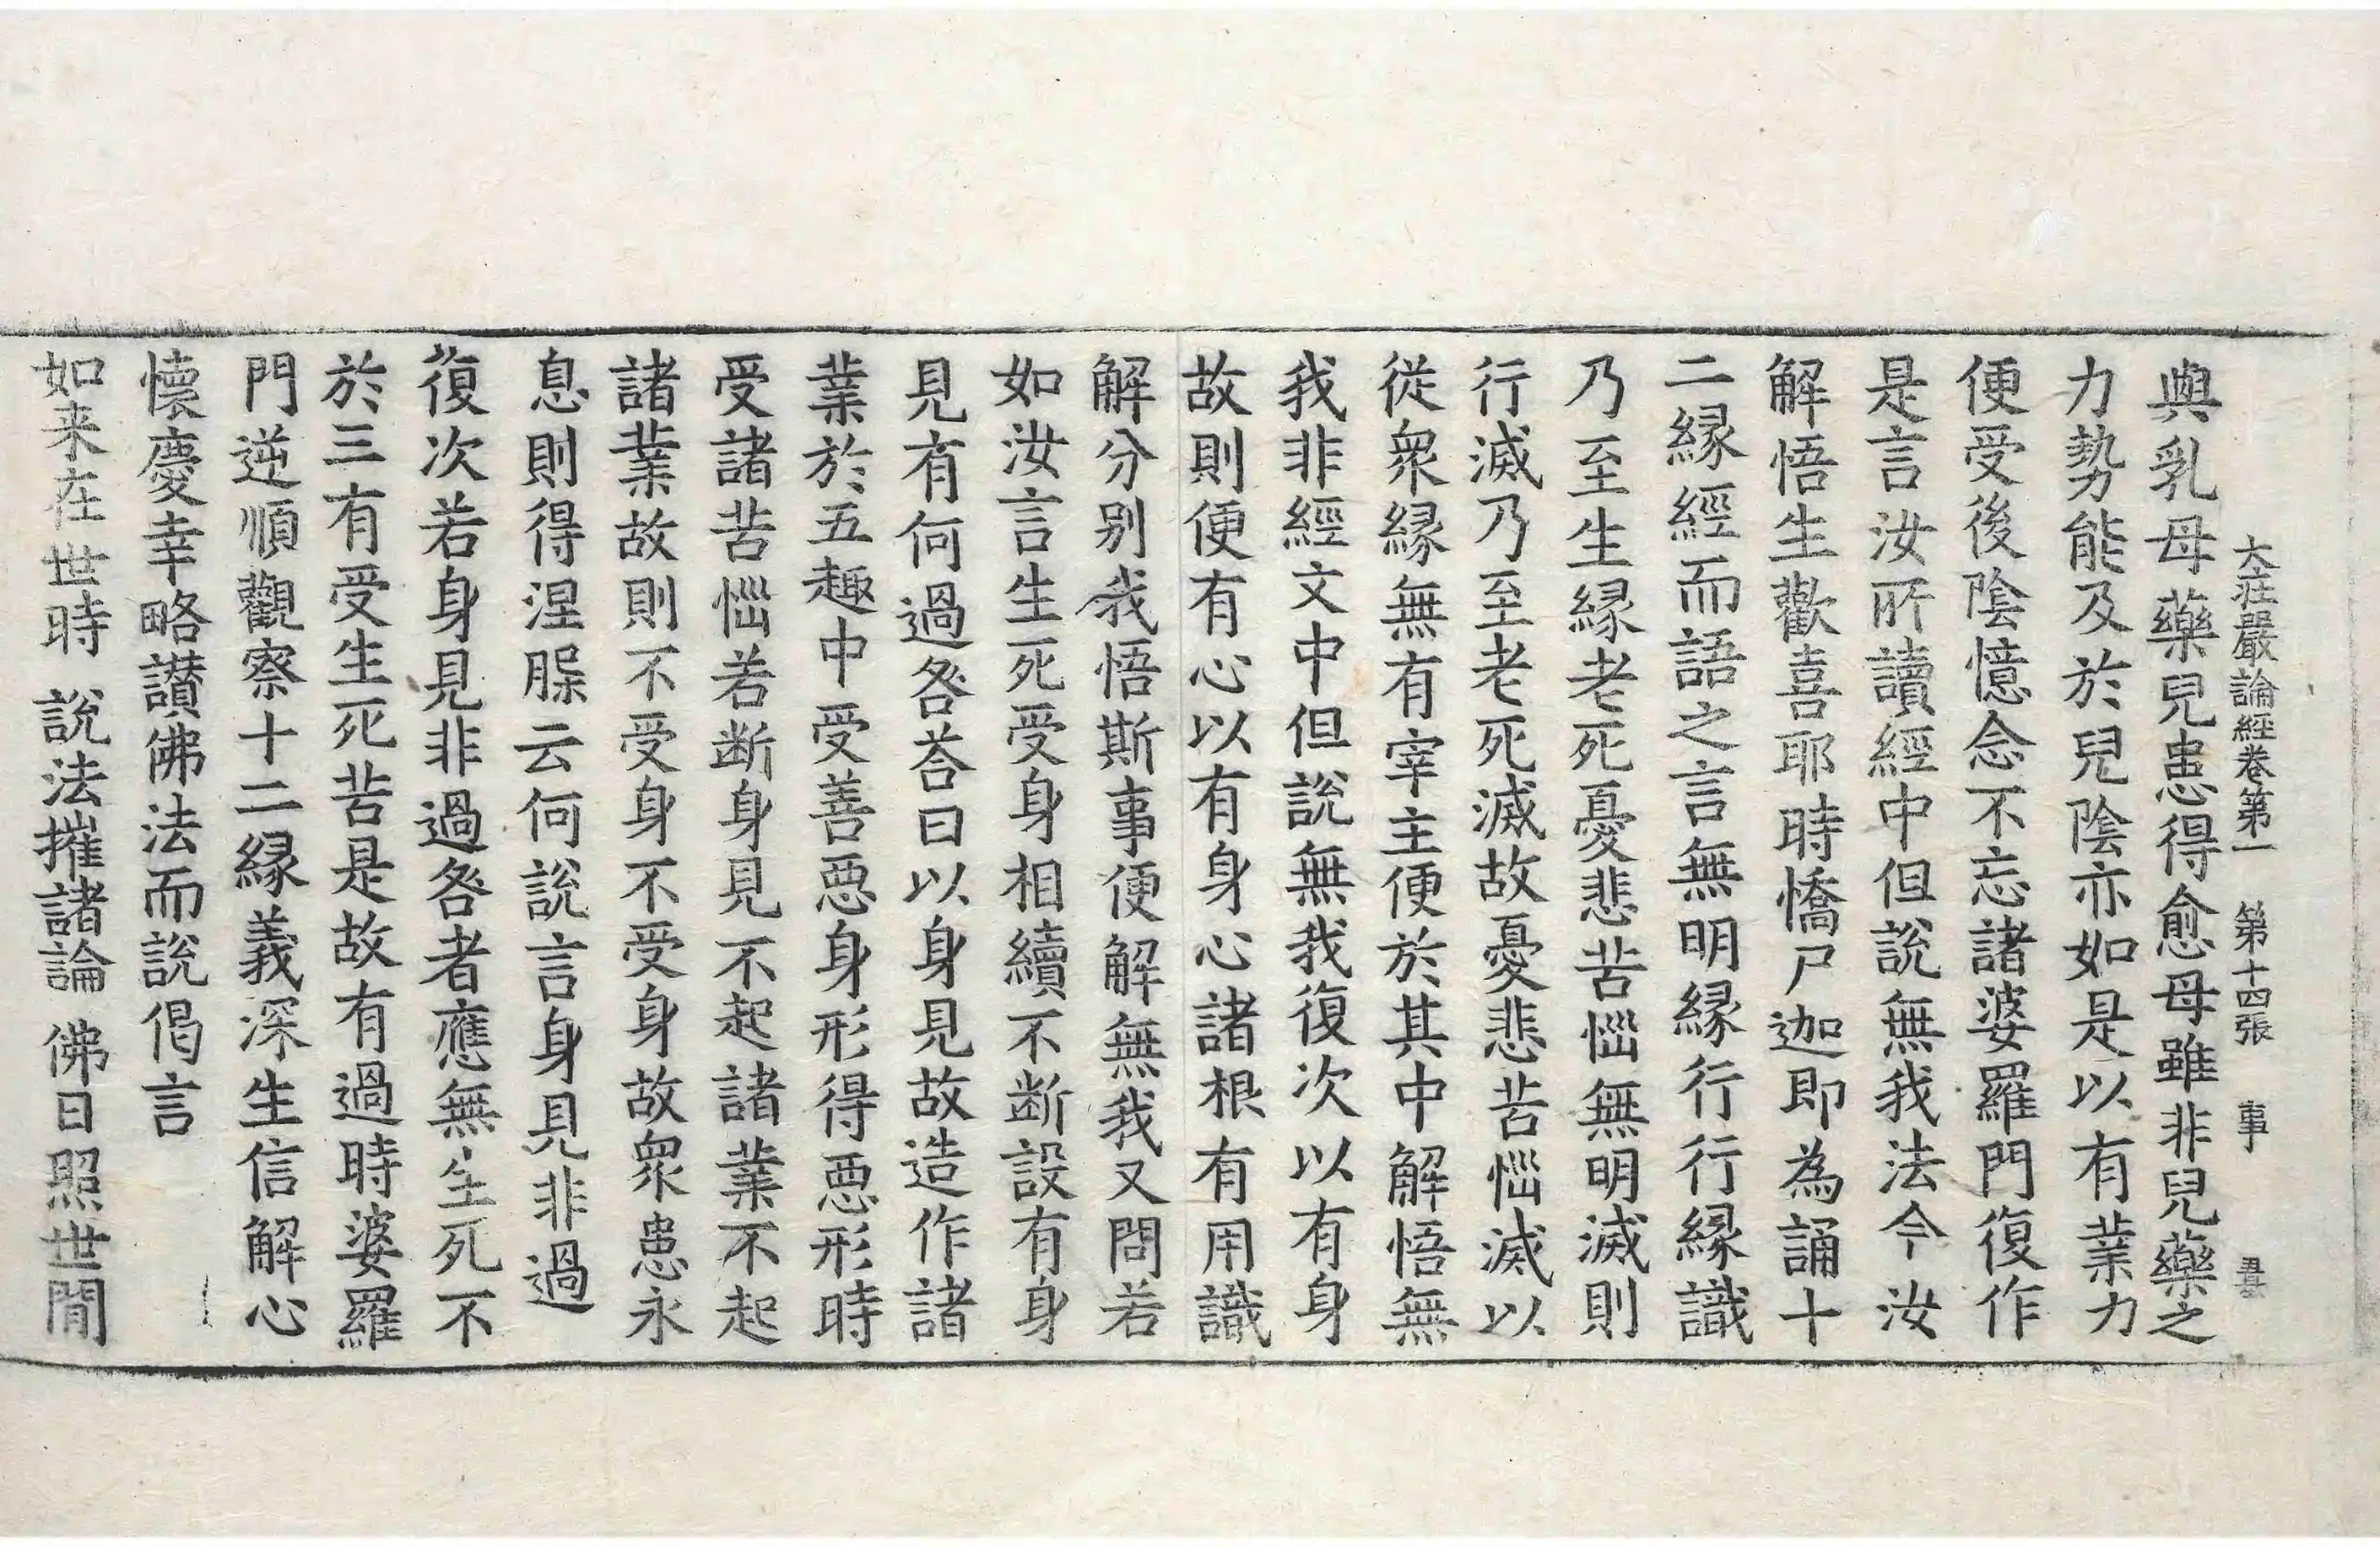 大莊嚴論經卷第一 第十四張 事
與乳母藥兒患得愈母雖非兒藥之
力勢能及於兒陰亦如是以有業力
便受後陰憶念不忘諸婆羅門復作
是言汝所讀經中但說無我法今汝
解悟生歡喜耶時憍尸迦即為誦十
二縁經而語之言無明縁行行縁識
乃至生縁老死憂悲苦惱無明滅則
行滅乃至老死滅故憂悲苦惱滅以
從衆縁無有宰主便於其中解悟無
我非經文中但說無我復次以有身
故則便有心以有身心諸根有用識
解分別我悟斯事便解無我又問若
如汝言生死受身相續不断設有身
見有何過咎荅曰以身見故造作諸
業於五趣中受善惡身形得惡形時
受諸苦惱若断身見不起諸業不起
諸業故則不受身不受身故衆患永
息則得涅槃云何說言身見非過
復次若身見非過咎者應無生死不
於三有受生死苦是故有過時婆羅
門逆順觀察十二縁義深生信解心
懷慶幸略讃佛法而說偈言
如来在世時 說法摧諸論 佛日照世閒